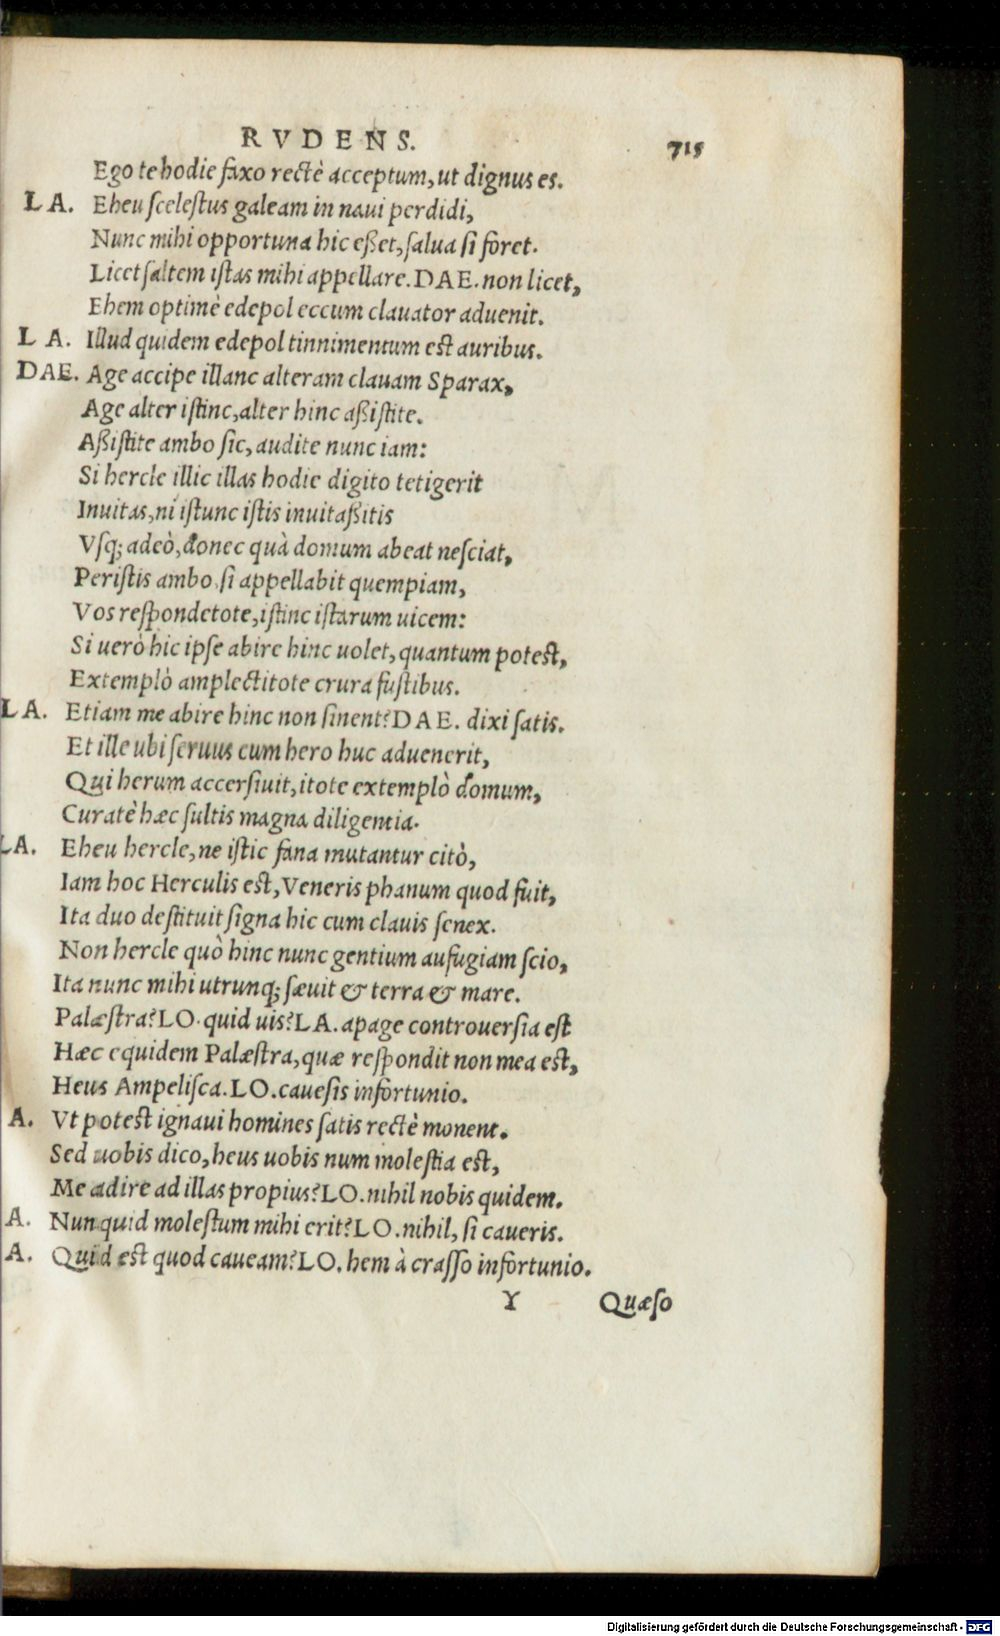 RVDENS. 715
Ego te hodie faxo rectè acceptum, ut dignus es.
LA. Eheu scelestus galeam in naui perdidi,
Nunc mihi opportuna hic eßet, salua si foret.
Licet saltem istas mihi appellare. DAE. non licet,
Ehem optimè edepol eccum clauator aduenit.
LA. Illud quidem edepol tinnimentum est auribus.
DAE. Age accipe illanc alteram clauam Sparax,
Age alter istinc, alter hinc aßistite.
Aßistite ambo sic, audite nunc iam:
Si hercle illic illas hodie digito tetigerit
Inuitas, ni istunc istis inuitaßitis
Vsq; adeò, donec quà domum abeat nesciat,
Peristis ambo. si appellabit quempiam,
Vos respondetote, istinc istarum uicem:
Si uerò hic ipse abire hinc uolet, quantum potest,
Extemplò amplectitote crura fustibus.
LA. Etiam me abire hinc non sinent? DAE. dixi satis.
Et ille ubi seruus cum hero huc aduenerit,
Qui herum accersiuit, itote extemplò domum,
Curatè hæc sultis magna diligentia.
LA. Eheu hercle, ne istic fana mutantur citò,
Iam hoc Herculis est, Veneris phanum quod fuit,
Ita duo destituit signa hic cum clauis senex.
Non hercle quò hinc nunc gentium aufugiam scio,
Ita nunc mihi utrunq; sæuit & terra & mare.
Palæstra? LO. quid uis? LA. apage controuersia est
Hæc equidem Palæstra, quæ respondit non mea est,
Heus Ampelisca. LO. cauesis infortunio.
A. Vt potest ignaui homines satis rectè monent.
Sed uobis dico, heus uobis num molestia est,
Me adire ad illas propius? LO. nihil nobis quidem.
A. Nunquid molestum mihi erit? LO. nihil, si caueris.
A. Quid est quod caueam? LO. hem à crasso infortunio.
Y Quæso
Digitalisierung gefördert durch die Deutsche Forschungsgemeinschaft - DFG